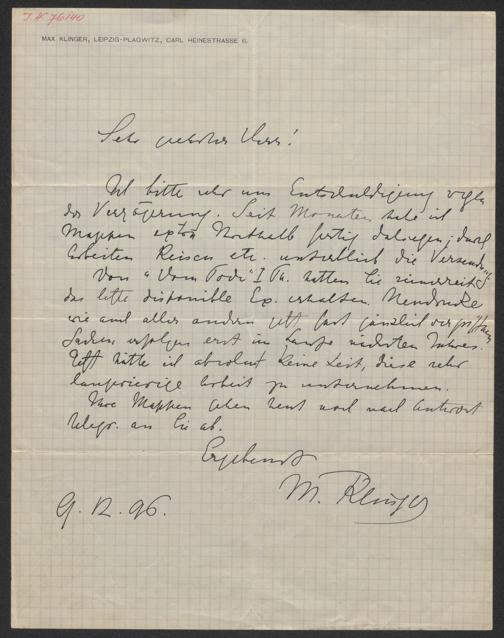 J.N. 76140
MAX KLINGER, LEIPZIG-PLAGWITZ, CARL HEINESTRASSE 6.
Sehr geehrter Herr!
Ich bitte sehr um Entschuldigung wegen
der Verzögerung. Seit Monaten habe ich
Mappen extra fertig daliegen; durch
Arbeiten Reisen etc. unterblieb die Versendung
Von "Vom Tode" I Th. hatten Sie seinerzeit
das letzte disponible Ex. erhalten. Neudrucke
wie auch aller andern jetzt fast gänzlich vergriffenen
Sachen erfolgen erst im Laufe nächsten Jahres.
Jetzt hätte ich absolut keine Zeit, diese sehr
langwierige Arbeit zu unternehmen.
Ihre Mappen gehen heut noch nach Antwort
telegr. an Sie ab.
Ergebenst
M. Klinger
9. 12. 96.